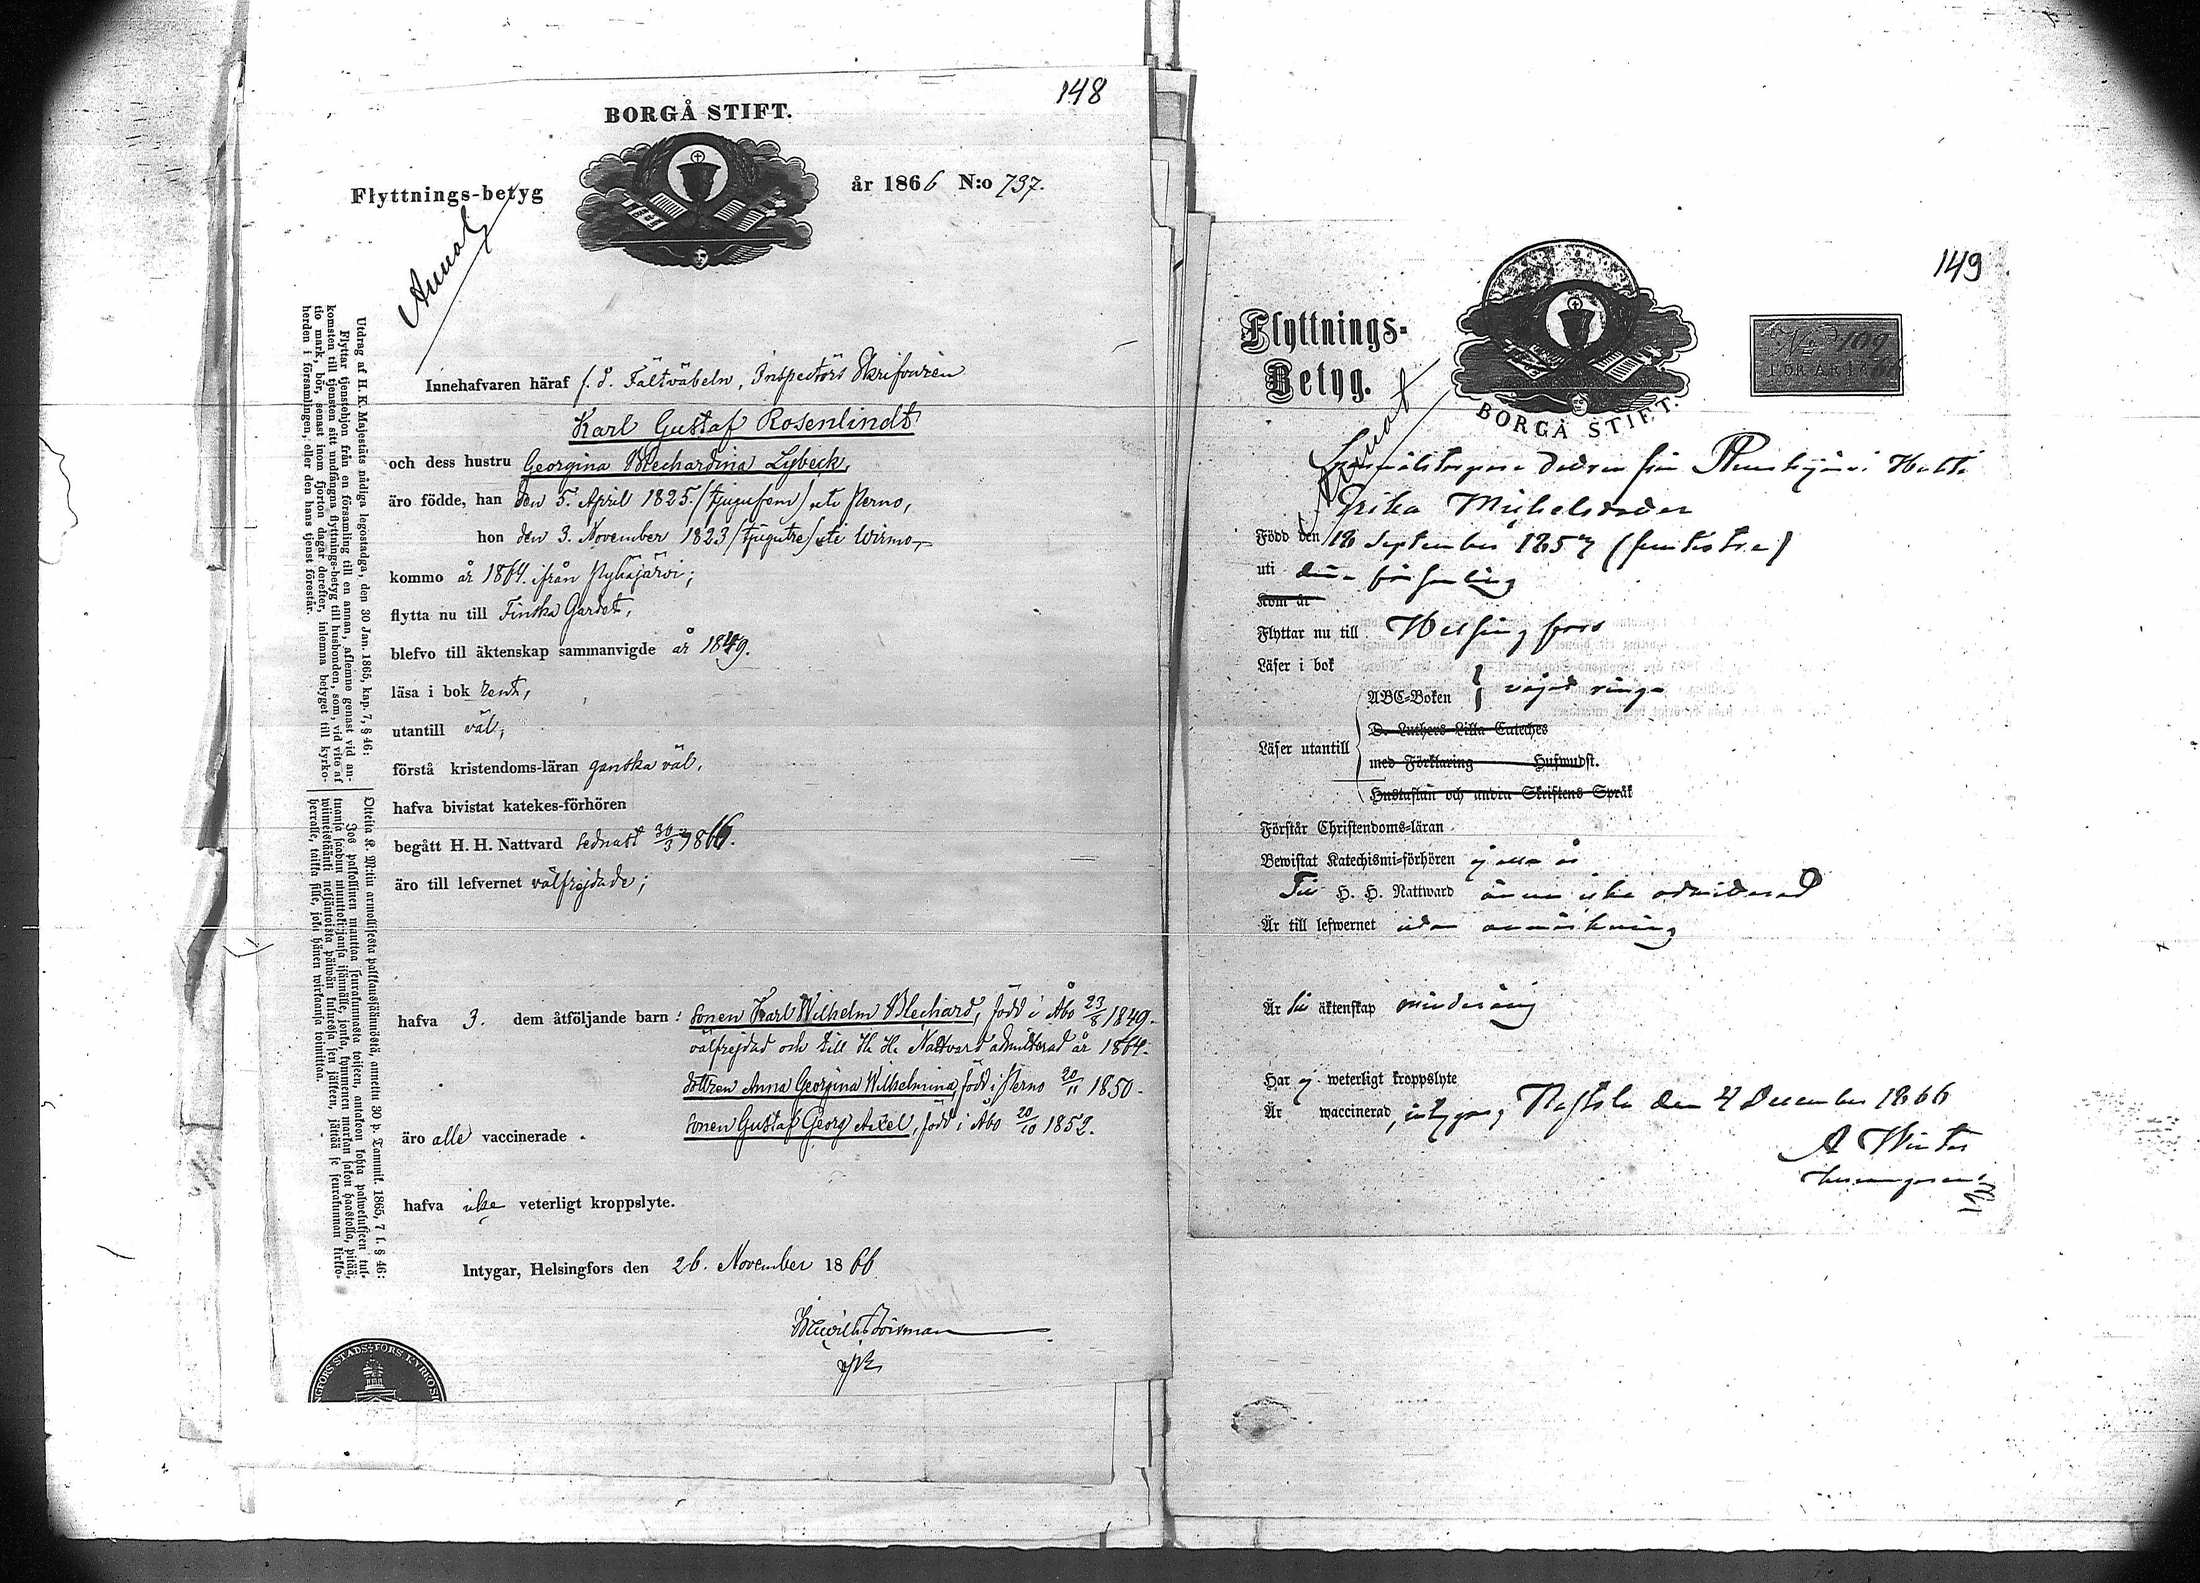 148
BORGÅ STIFT.
Flyttnings-betyg
år 1866 N:o 737.
Annot
Innehafvaren häraf f. d. Fältväbeln, Inspectörs Skrifvaren
Karl Gustaf Rosenlindt
och dess hustru Georgina Blechardina Lybeck,
äro födde, han den 5. April 1825. (tjugufem) uti Perno,
hon den 3. November 1823 (tjugutre) uti Wirmo
kommo år 1864. ifrån Pyhäjärvi;
flytta nu till Finska Gardet,
blefvo till äktenskap sammanvigde år 1849.
läsa i bok rent,
utantill väl,
förstå kristendoms-läran ganska väl,
hafva bivistat katekes-förhören
begått H. H. Nattvard sednast 30/3 1866.
äro till lefvernet välfrejdade;
hafva 3. dem åtföljande barn: sonen Karl Wilhelm Blechard, född i Åbo 23/8 1849.
välfrejdad och till H. H. Nattvard admitterad år 1864.
dottren Anna Georgina Wilhelmina, född i Perno 20/11 1850.
sonen Gustaf Georg Axel, född i Åbo 20/10 1852.
äro alle vaccinerade.
hafva icke veterligt kroppslyte.
Intygar, Helsingfors den 26. November 1866
Utdrag af H. K. Majestäts nådiga legostadga, den 30 Jan. 1865, kap. 7, § 46:
Flyttar tjenstehjon från en församling till en annan, aflemne genast vid an-
komsten till tjensten sitt undfångna flyttnings-betyg till husbonden, som, vid vite af
tio mark, bör, senast inom fjorton dagar derefter, inlemna betyget till kyrko-
herden i församlingen, eller den hans tjenst förestår.
Otteita K. M:tin armollisesta palkkaussäännöstä, annettu 30 p. Tammik. 1865, 7 l. § 46:
Jos palkollinen muuttaa seurakunnasta toiseen, antakoon kohta palwelukseen tul-
tuansa saadun muuttokirjansa isännälle, jonka, kymmenen markan sakon haastolla, pitää,
wiimeistäänki neljäntoista päiwän kuluessa sen jälkeen, jättää se seurakunnan kirkko-
herralle, taikka sille, joka hänen wirkaansa toimittaa.
149
Flyttnings-
Betyg.
BORGÅ STIFT.
No 109
FÖR ÅR 1866
Annot
Michelsdotter
Född den 18 September 1857
uti denna församling
Kom år
Flyttar nu till Helsingfors
Läser i bok
ABC-Boken
D. Luthers Lilla Cateches
Läser utantill
med Förklaring Hufwudst.
Hustaflan och andra Skriftens Språk
Förstår Christendoms-läran
Bewistat Katechismi-förhören ej alla år
Till H. H. Nattward ännu icke admitterad
Är till lefwernet utan anmärkning
Är till äktenskap minderårig
Har ej weterligt kroppslyte
Är waccinerad, intygas, Nastola den 4 December 1866